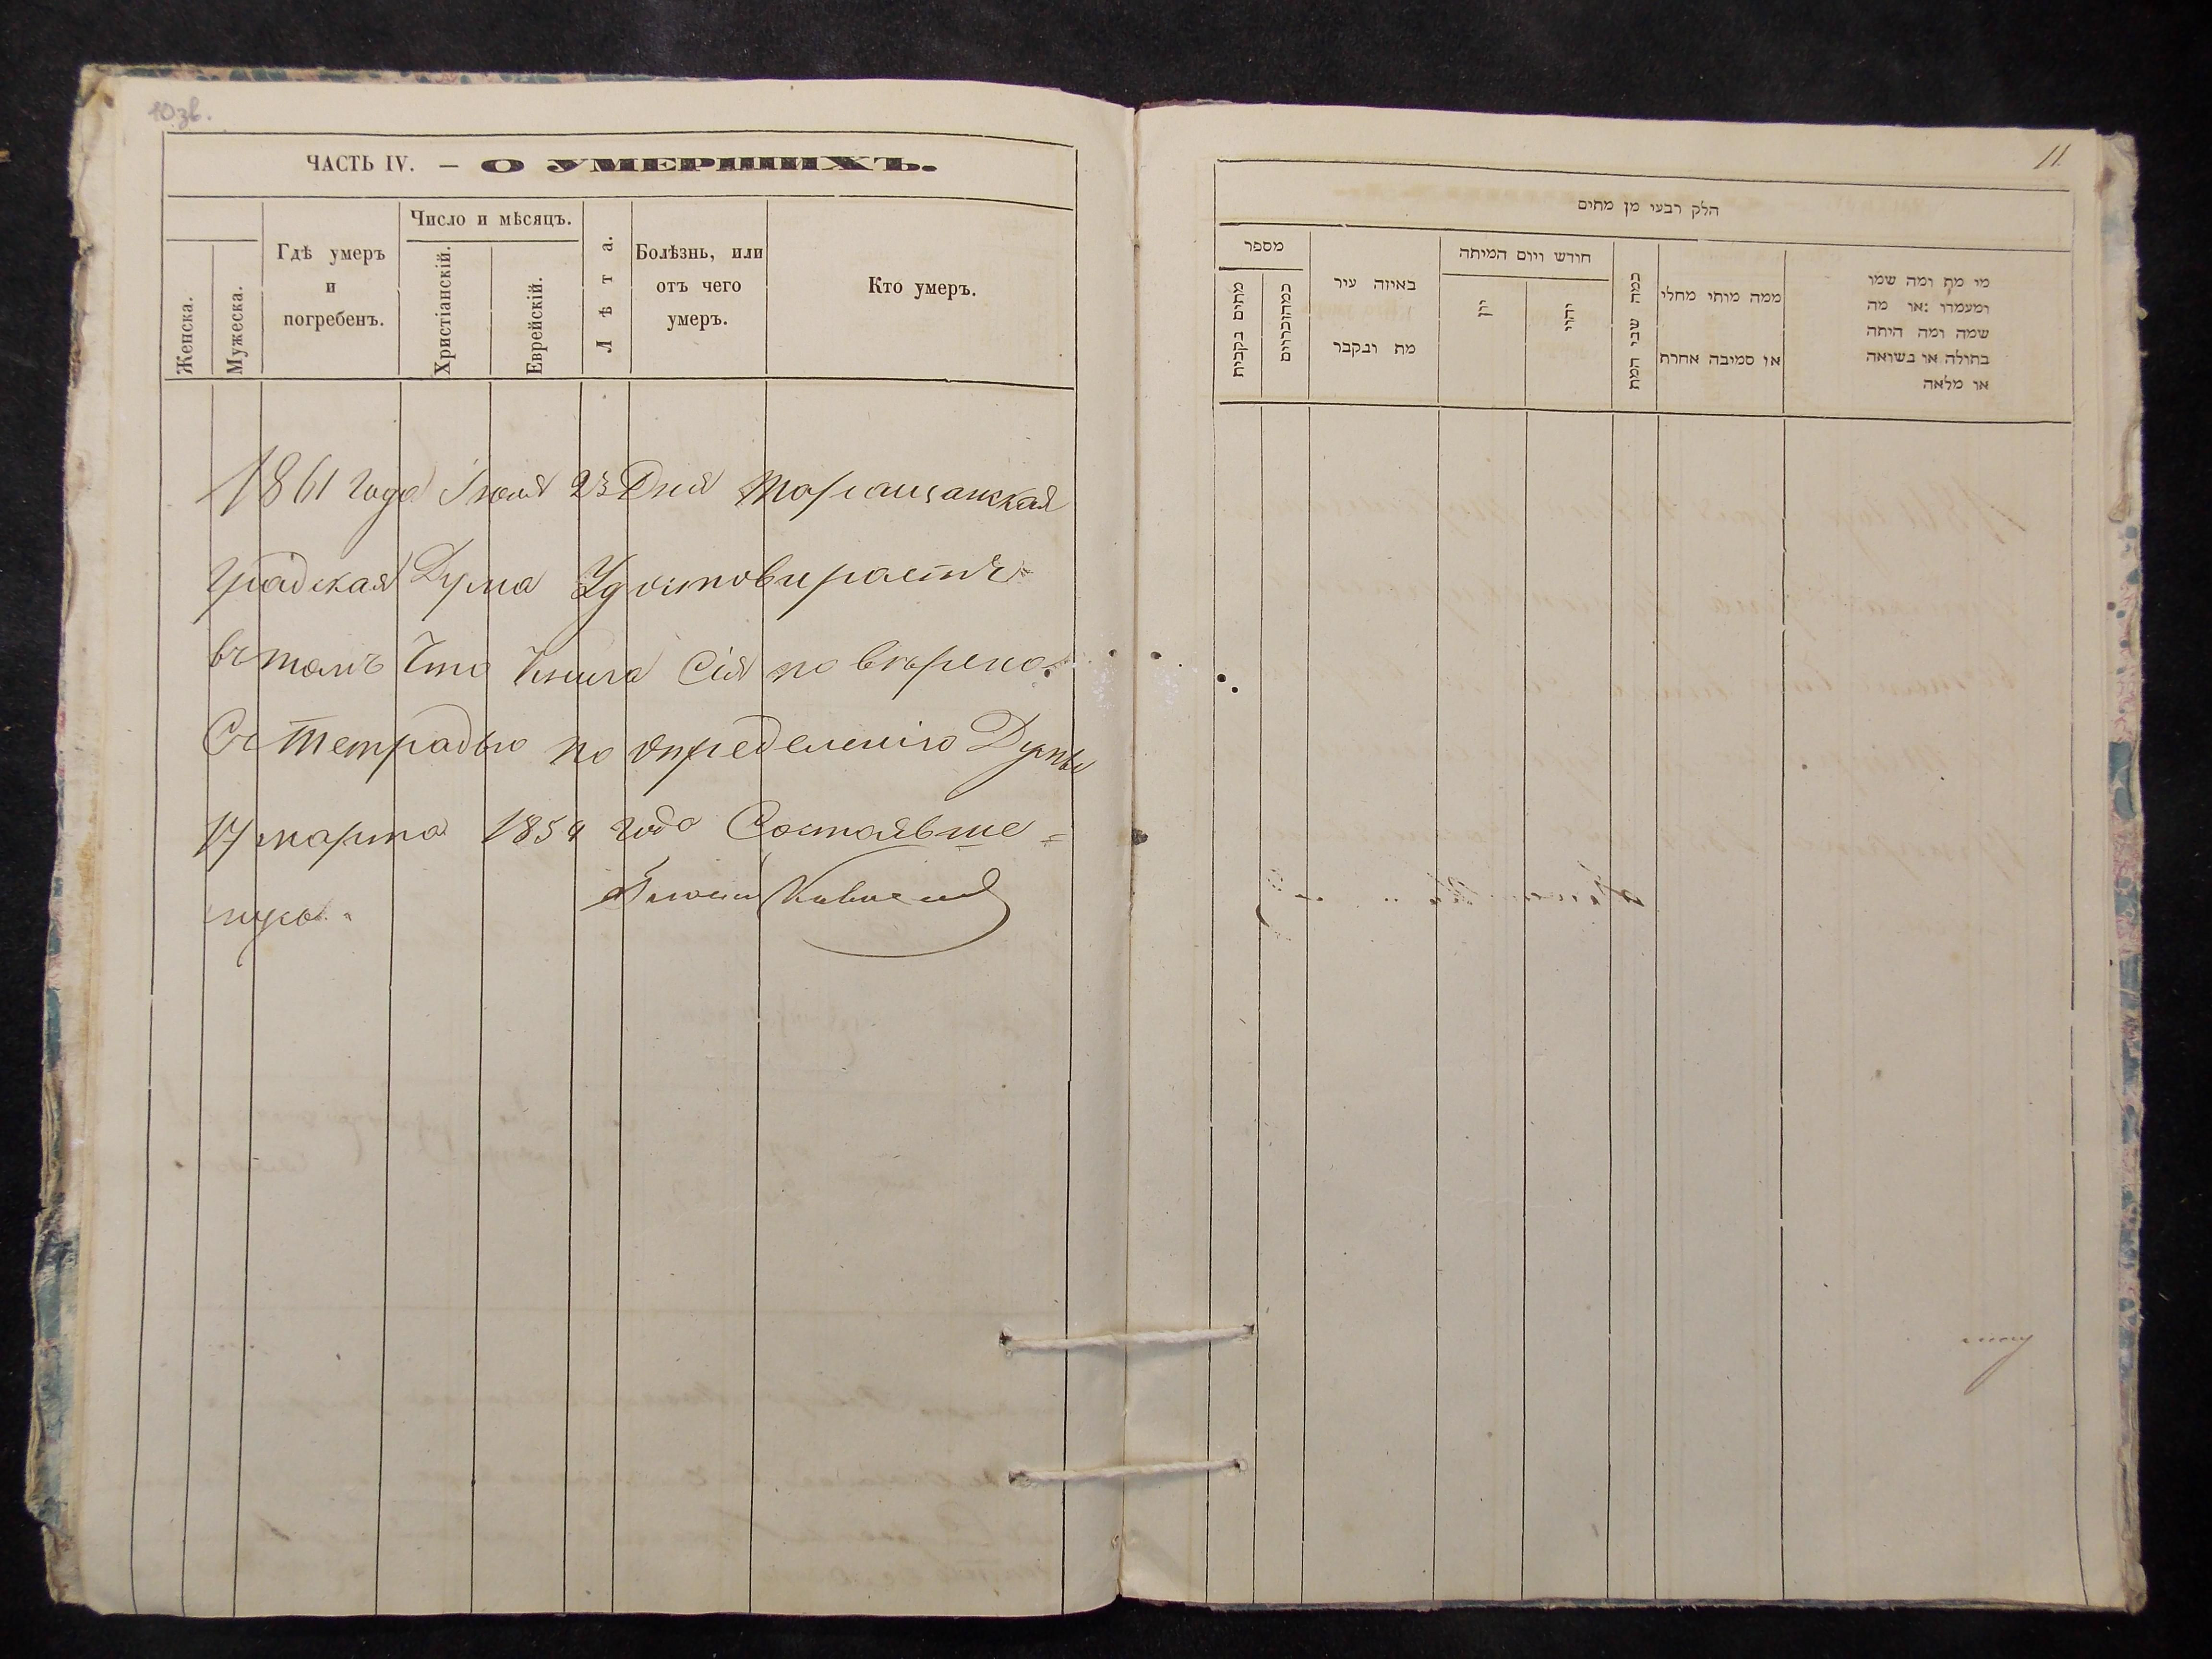 10зв.
ЧАСТЬ IV. — О УМЕРШИХЪ.
Женска.
Мужеска.
Гдѣ умеръ
и
погребенъ.
Число и мѣсяцъ.
Христіанскій.
Еврейскій.
Лѣта.
Болѣзнь, или
отъ чего
умеръ.
Кто умеръ.
1861 года Июля 23 Дня Таращанская
Градская Дума Удостовираетъ
въ томъ Что Книга Сія по вѣрена
Съ Тетрадью по определенію Думы
17 марта 1854 года Состаявше=
муся.
11
חלק רבעי מן מתים
מספר
מתים נקבות
כמה זכרים
באיזה עיר
מת ונקבר
חודש ויום המיתה
יון
יהודי
כמה שני המת
ממה מותו מחלי
או מסיבה אחרת
מי מת ומה שמו
ומעמדו :או מה
שמה ומה היתה
בתולה או נשואה
או מלאה